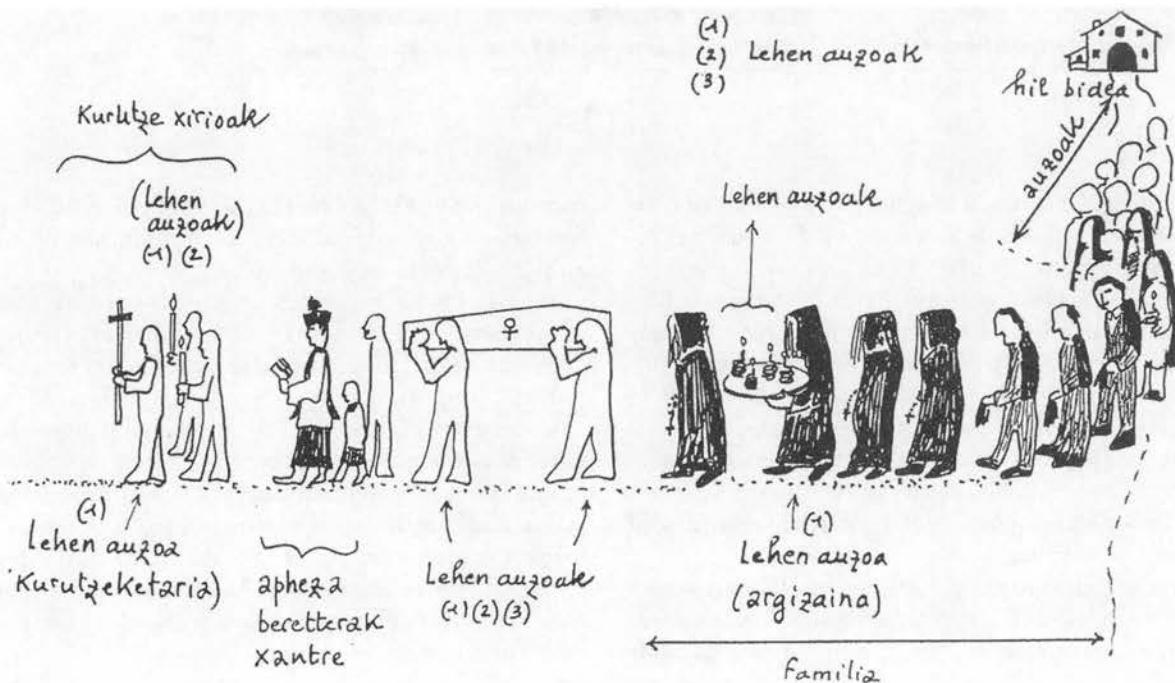 (1)
(2) Lehen auzoak
(3)
hil bidea
auzoak
Kurutze xirioak
(Lehen
auzoak)
(1) (2)
Lehen auzoak
(1)
Lehen auzoa
(Kurutzeketaria)
apheza
beretterak
xantre
Lehen auzoak
(1) (2) (3)
(1)
Lehen auzoa
(argizaina)
familia